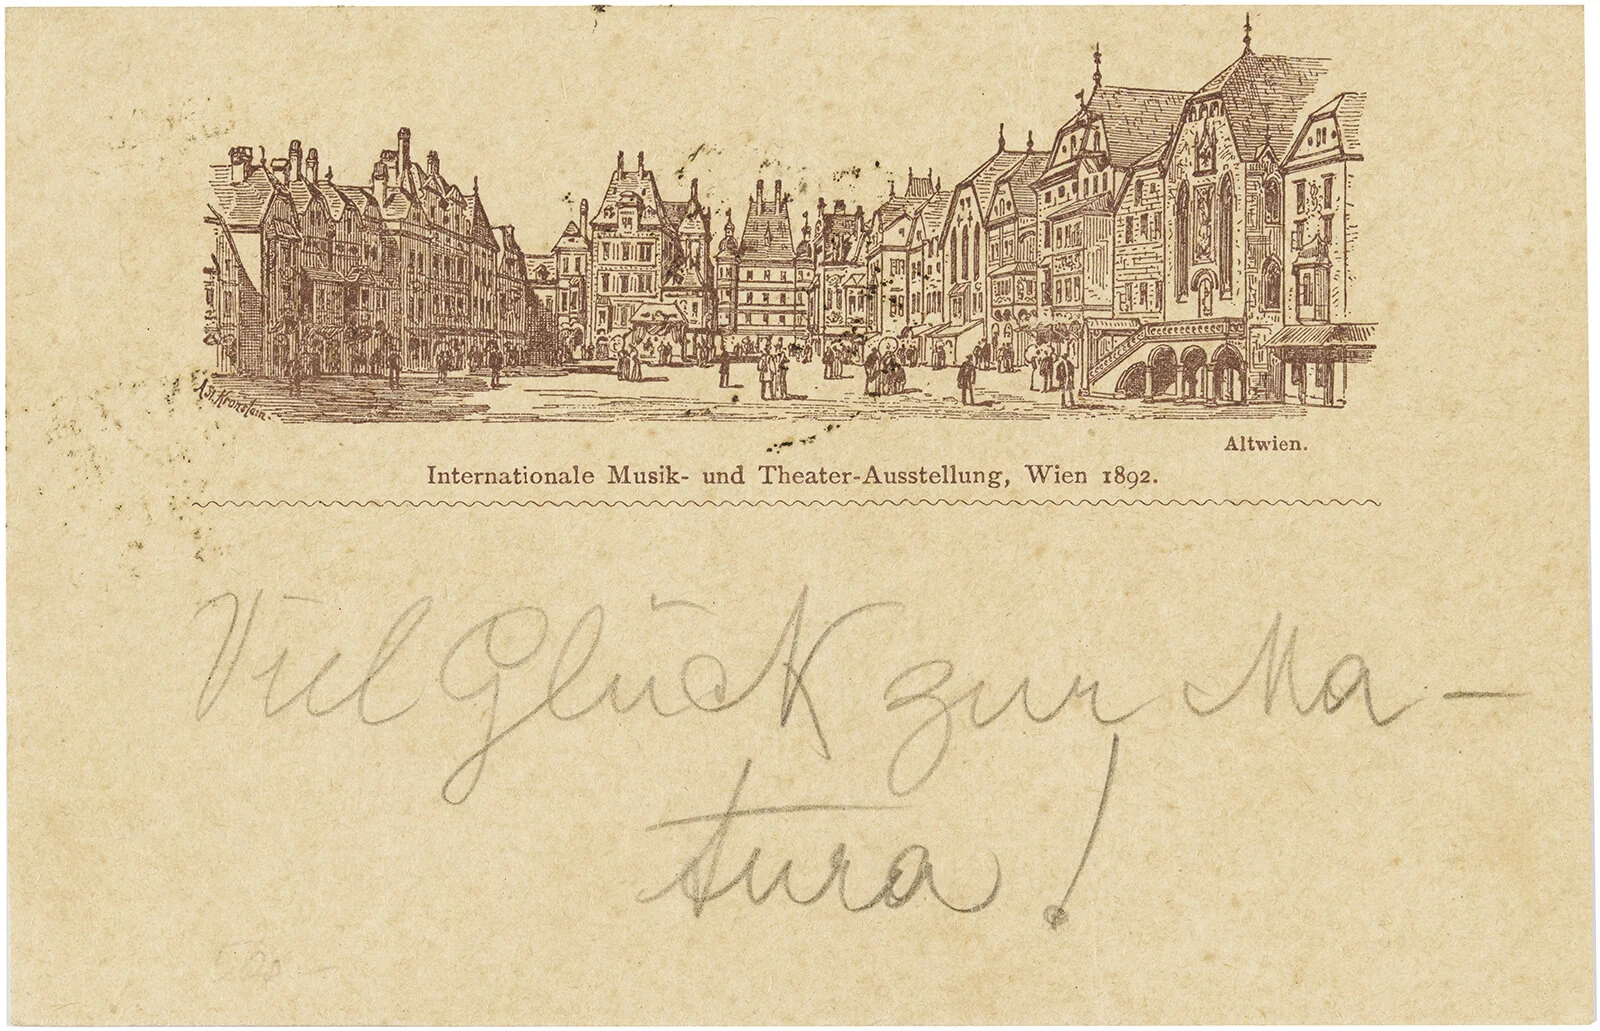 A. St. Kronstein.
Altwien.
Internationale Musik- und Theater-Ausstellung, Wien 1892.
Viel Glück zur Ma-
tura!